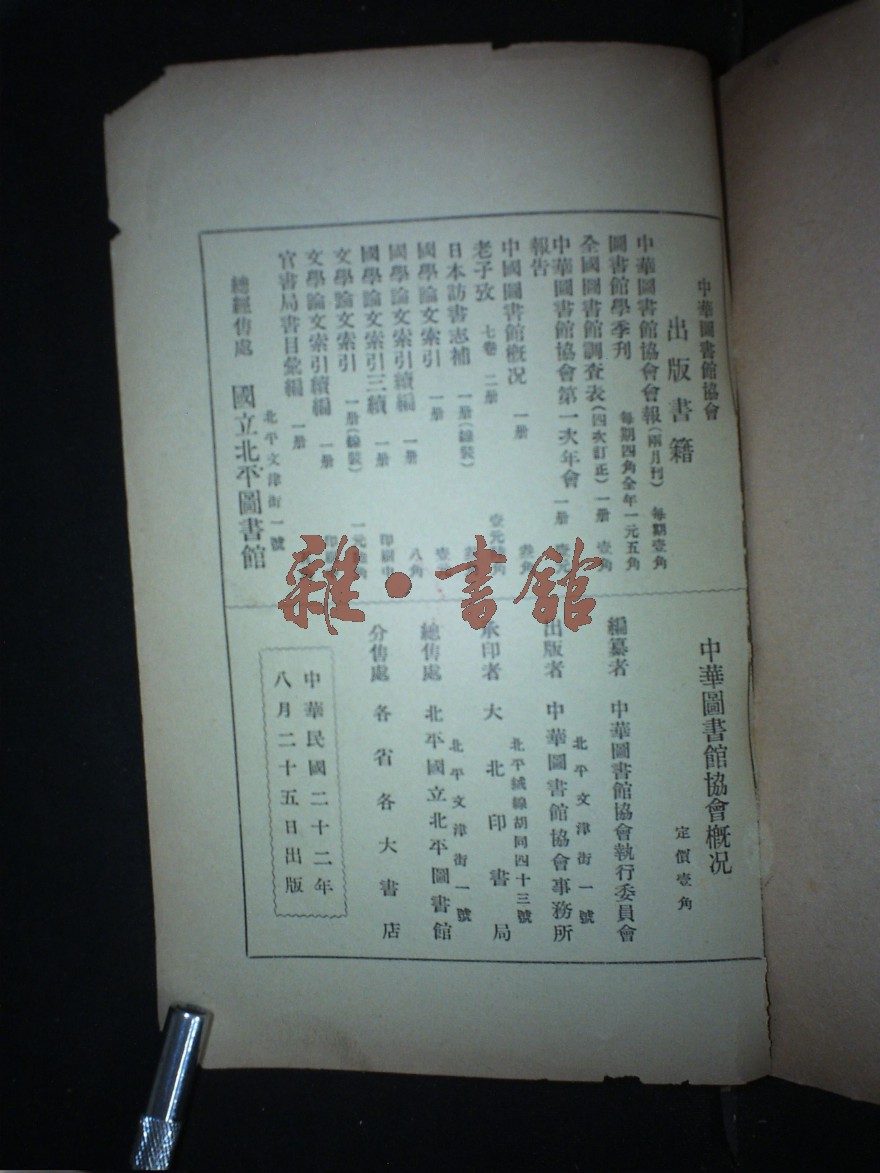 中華圖書館協會
出版書籍
中華圖書館協會會報(兩月刊) 每期壹角
圖書館學季刊 每期四角全年一元五角
全國圖書館調查表(四次訂正) 一册 壹角
中華圖書館協會第一次年會報告 一册 壹元
中國圖書館概况 一册 角
老子攷 七卷 二册 壹元 角
日本訪書志補 一册(線裝)
國學論文索引 一册 壹
國學論文索引續編 一册 八角
國學論文索引三續 一册 印刷中
文學論文索引 一册(線裝) 一元 角
文學論文索引續編 一册 印刷
官書局書目彙編 一册
總經售處 國立北平圖書館
北平文津街一號
中華圖書館協會概况
定價壹角
編纂者 中華圖書館協會執行委員會
北平文津街一號
出版者 中華圖書館協會事務所
北平絨線胡同四十三號
承印者 大北印書局
北平文津街一號
總售處 北平國立北平圖書館
分售處 各省各大書店
中華民國二十二年
八月二十五日出版
雜·書館